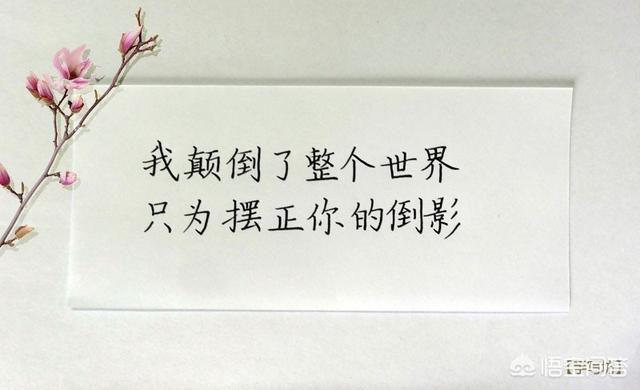 我颠倒了整个世界
只为摆正你的倒影